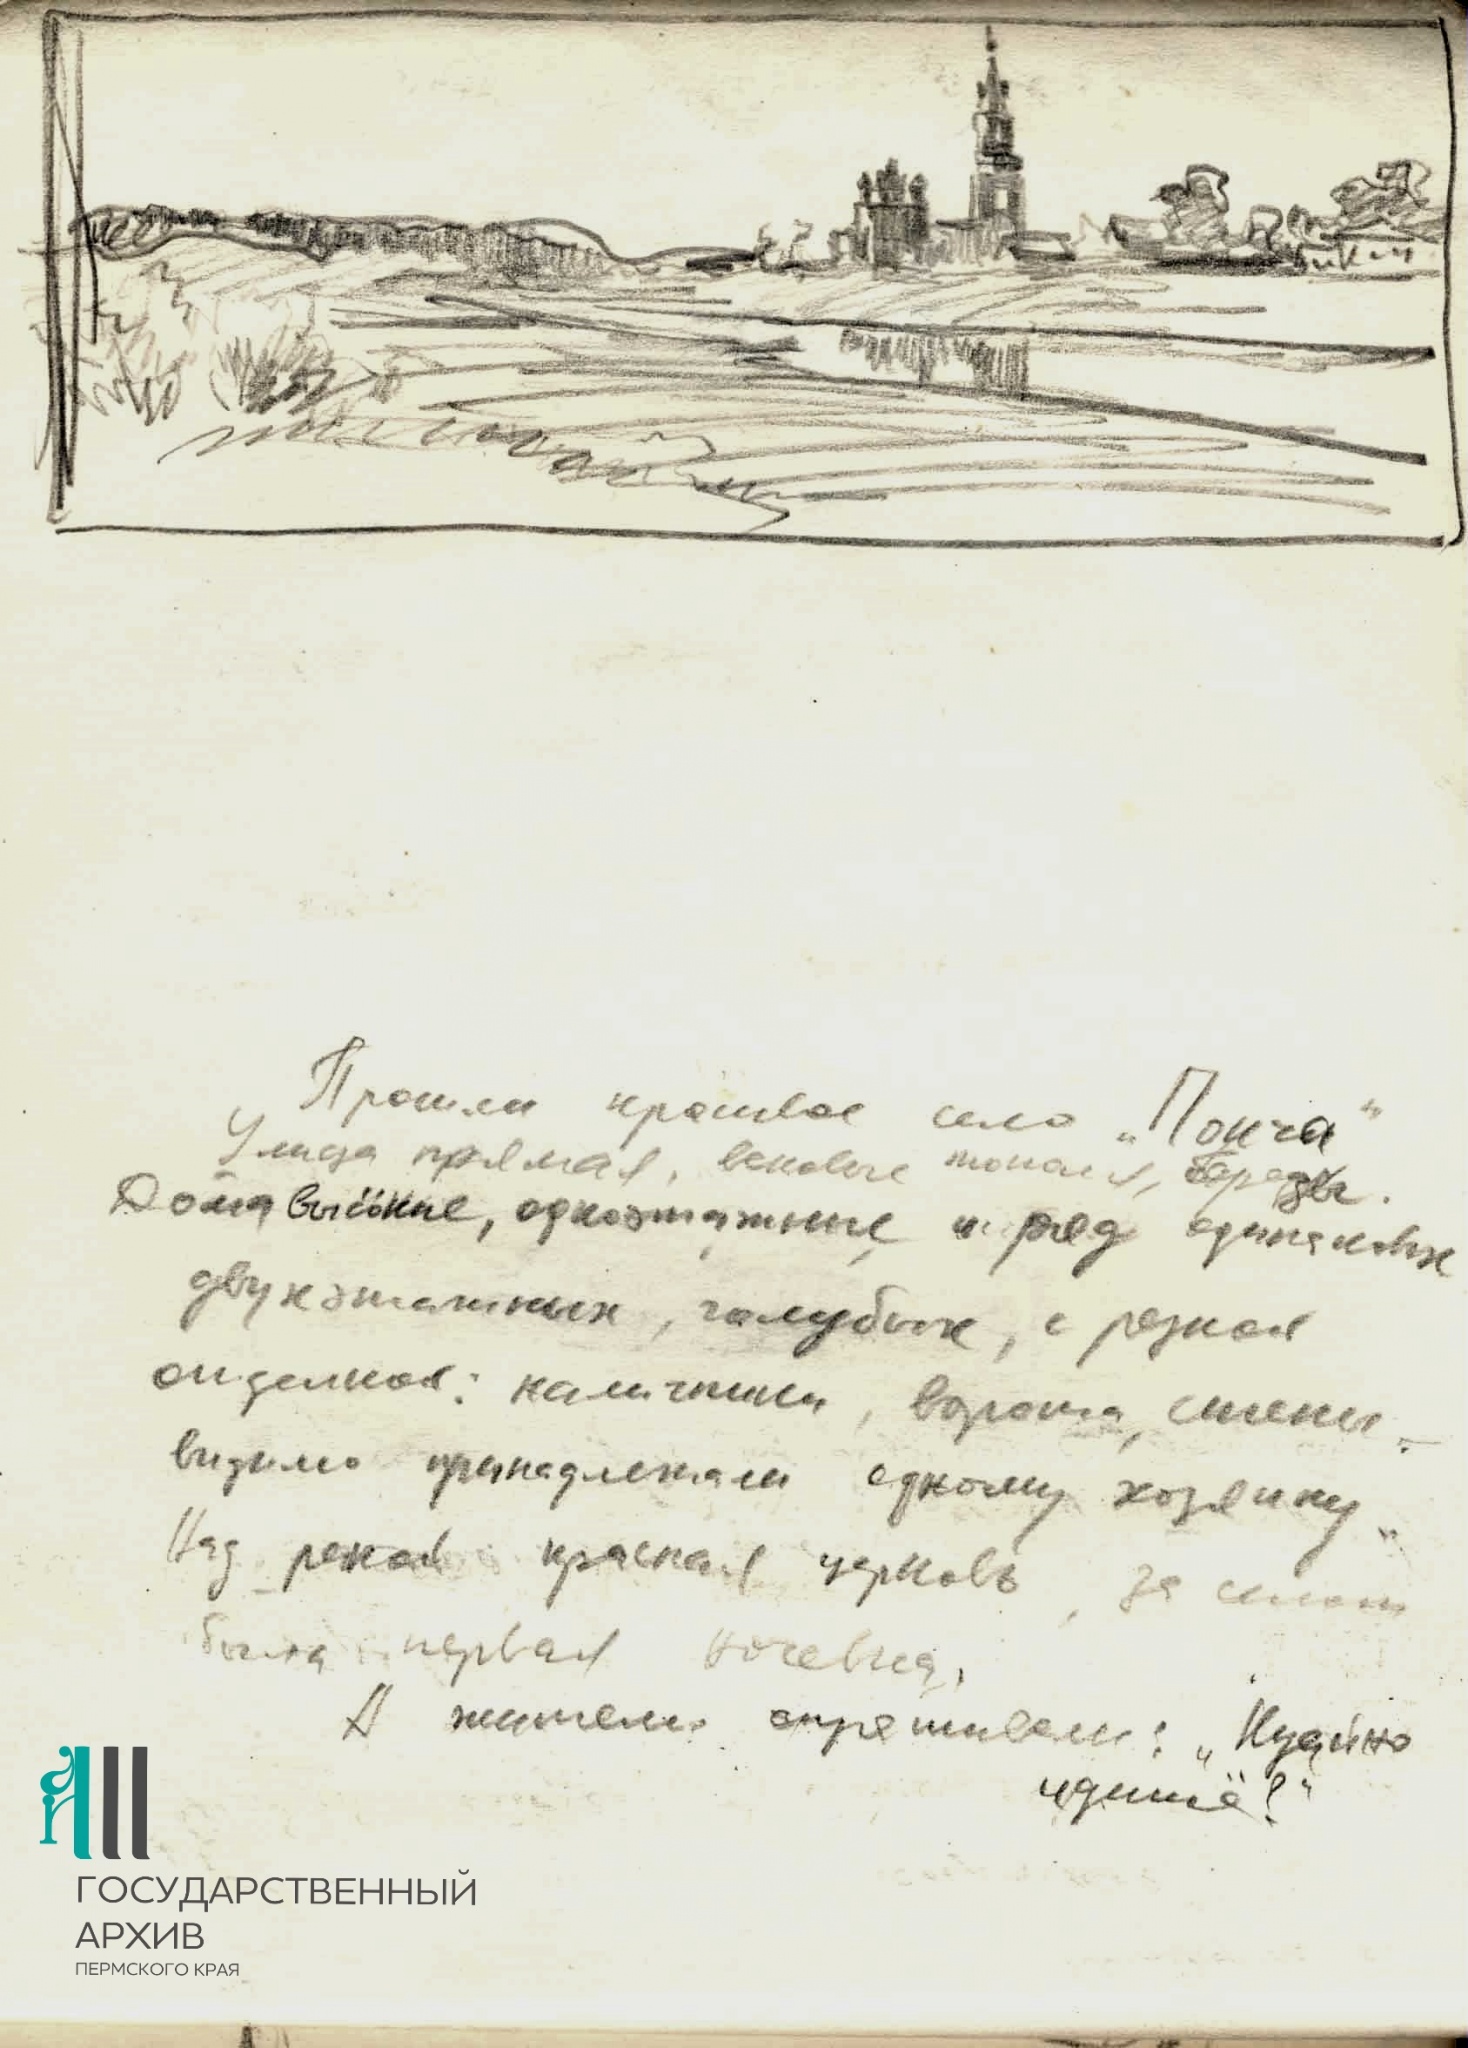 Прошли красивое село „Понча“
Улица прямая, вековые тополя, березы.
Дома высокие, одноэтажные и ряд одинаковых
двухэтажных, голубых, с резной
отделкой: наличники, ворота, стены.
видимо принадлежали одному хозяину"
Над рекой красная церковь, за селом
была первая ночевка.
А жители спрашивали: „Кудайно
идитё?"
ГОСУДАРСТВЕННЫЙ
АРХИВ
ПЕРМСКОГО КРАЯ